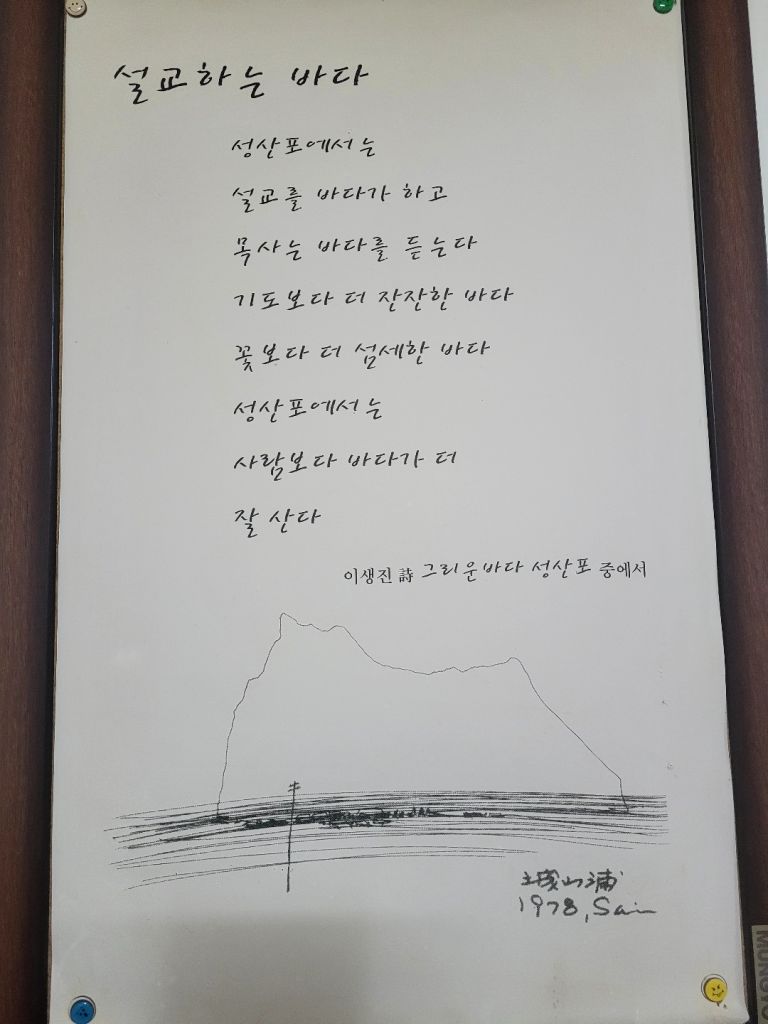 설교하는 바다
성산포에서는
설교를 바다가 하고
목사는 바다를 듣는다
기도보다 더 잔잔한 바다
꽃보다 더 섬세한 바다
성산포에서는
사람보다 바다가 더
잘 산다
이생진 詩 그리운바다 성산포 중에서
城山浦
1978, Sain
MUNGYO